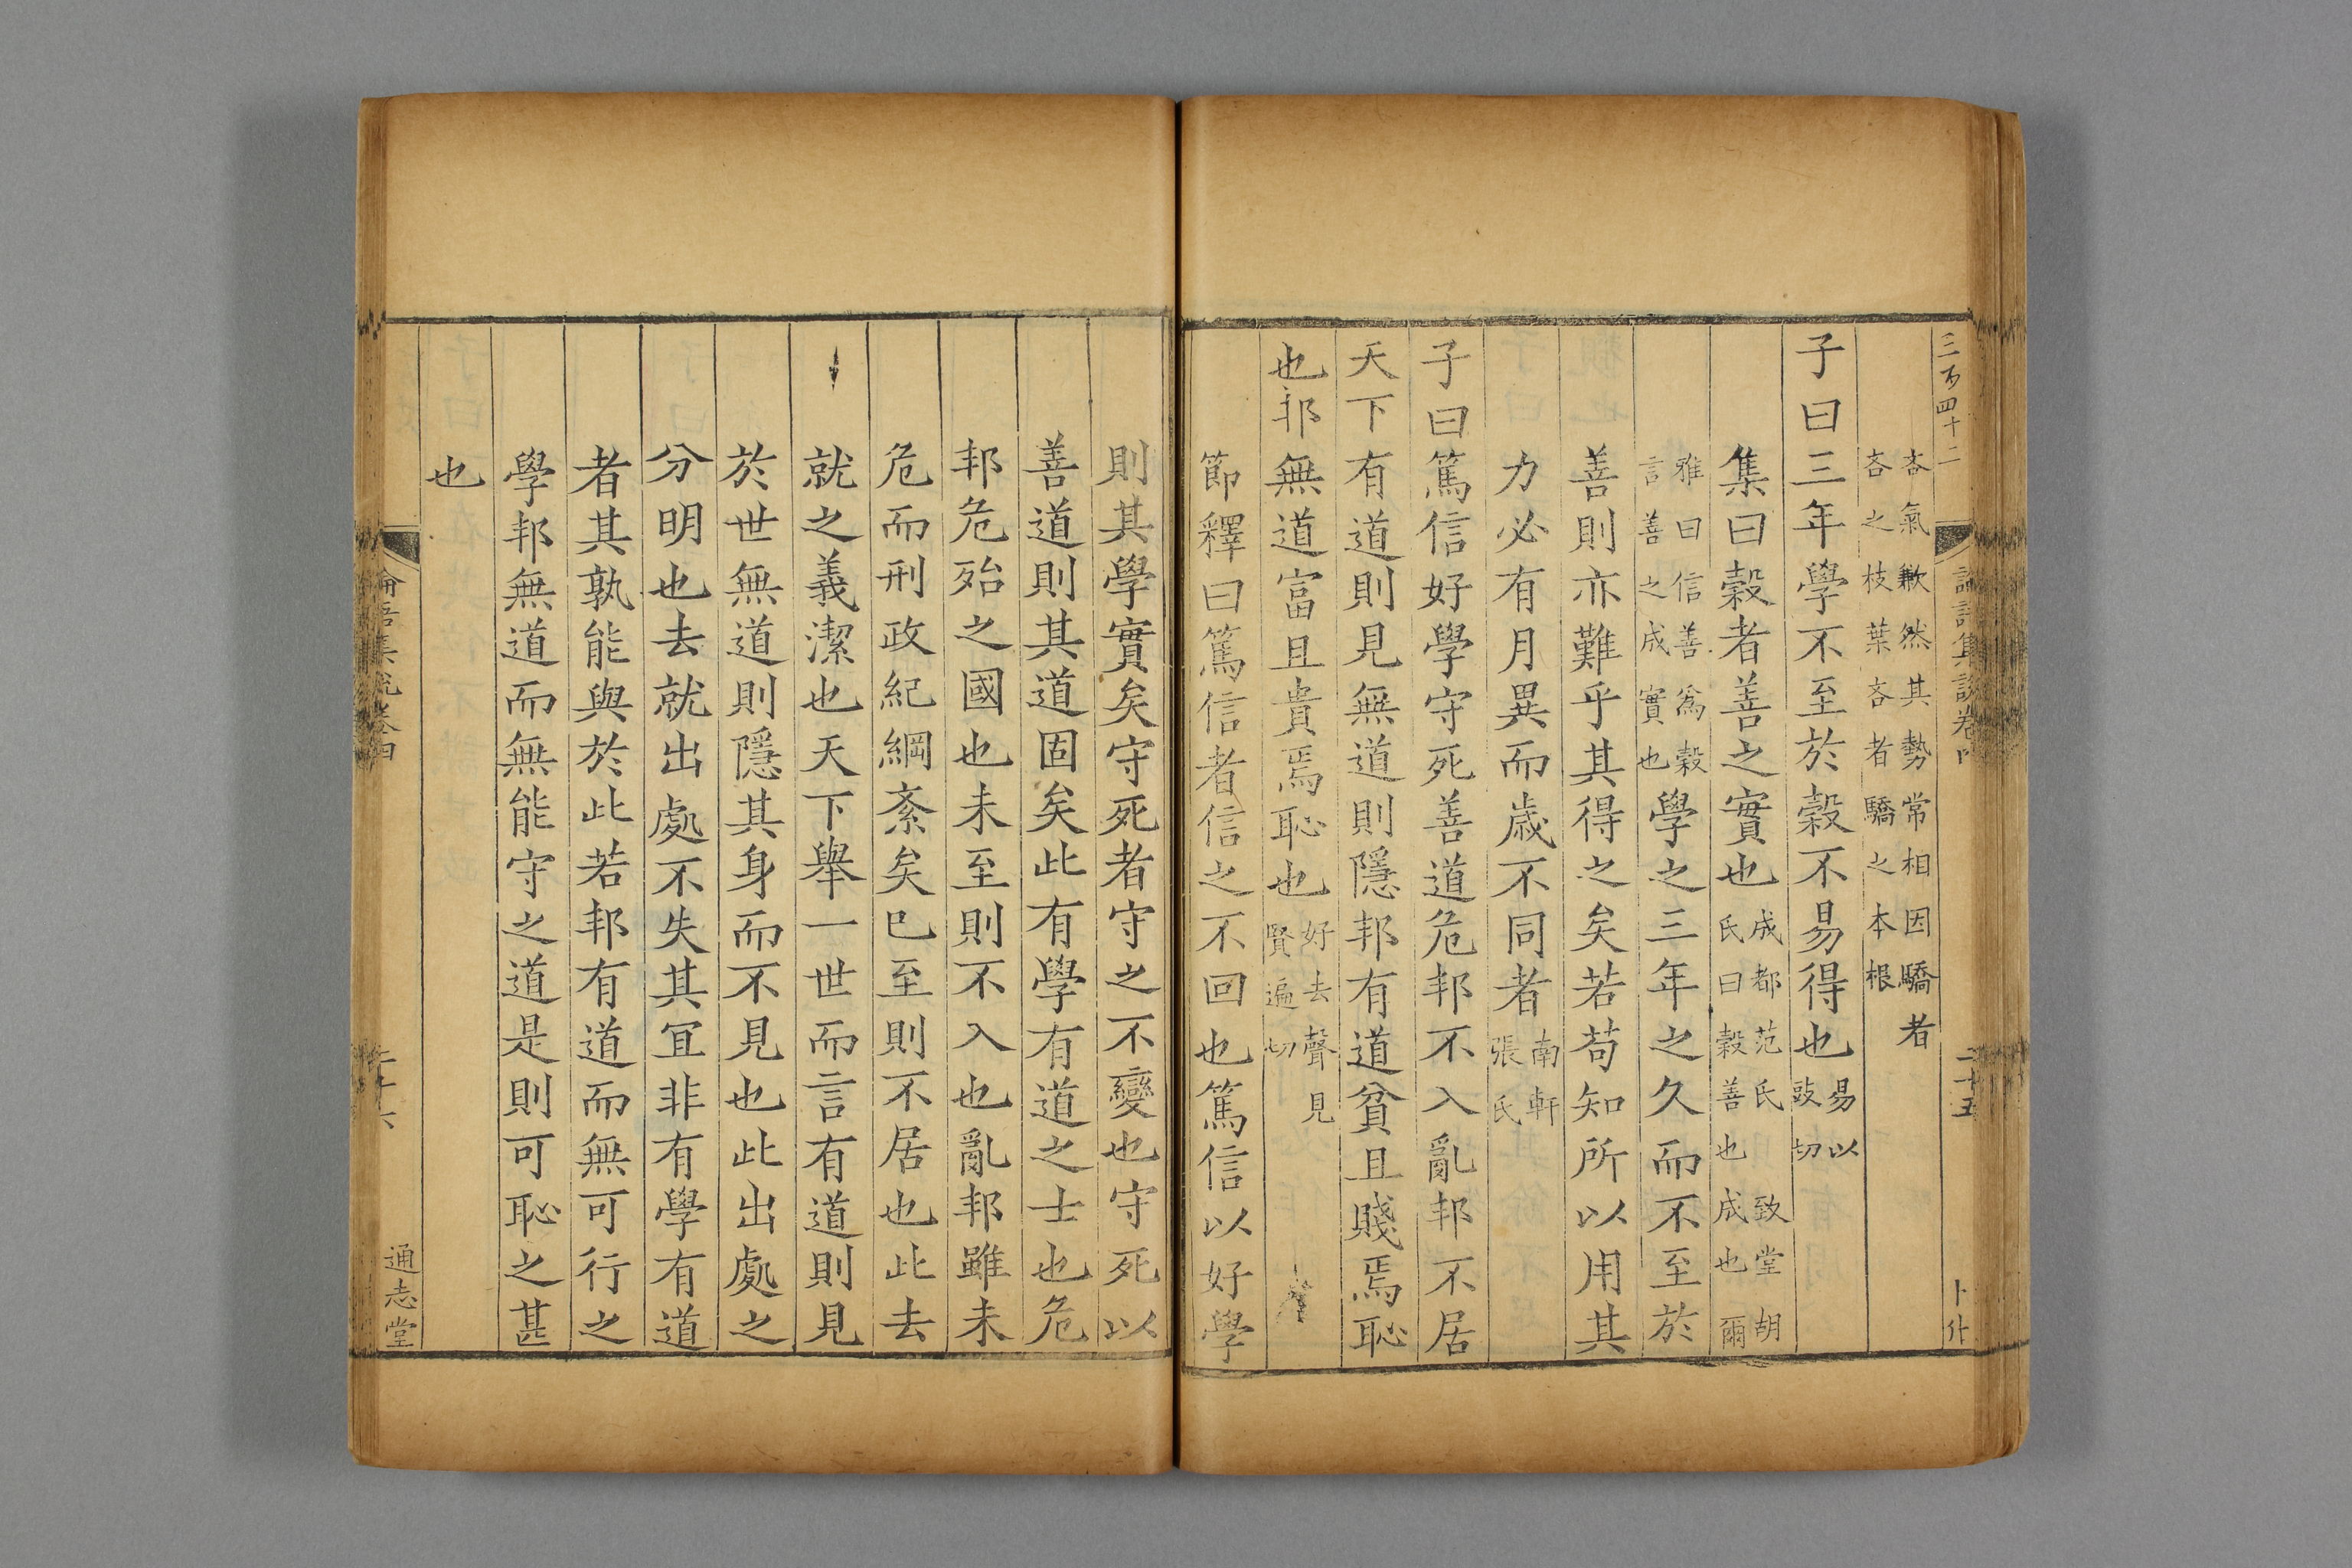 三百四十二
論語集說卷四
二十五
吝氣歉然其勢常相因驕者
吝之枝葉吝者驕之本根
子曰三年學不至於穀不易得也易以
豉切
集曰穀者善之實也成都范氏 致堂胡
氏曰穀善也成也爾
雅曰信善爲穀
言善之成實也學之三年之久而不至於
善則亦難乎其得之矣若苟知所以用其
力必有月異而歳不同者南軒
張氏
子曰篤信好學守死善道危邦不入亂邦不居
天下有道則見無道則隱邦有道貧且賤焉恥
也邦無道富且貴焉恥也好去聲見
賢遍切
節釋曰篤信者信之不回也篤信以好學
則其學實矣守死者守之不變也守死以
善道則其道固矣此有學有道之士也危
邦危殆之國也未至則不入也亂邦雖未
危而刑政紀綱紊矣巳至則不居也此去
就之義潔也天下舉一世而言有道則見
於世無道則隱其身而不見也此出處之
分明也去就出處不失其宜非有學有道
者其孰能與於此若邦有道而無可行之
學邦無道而無能守之道是則可恥之甚
也
論語集說卷四
二十六
通志堂